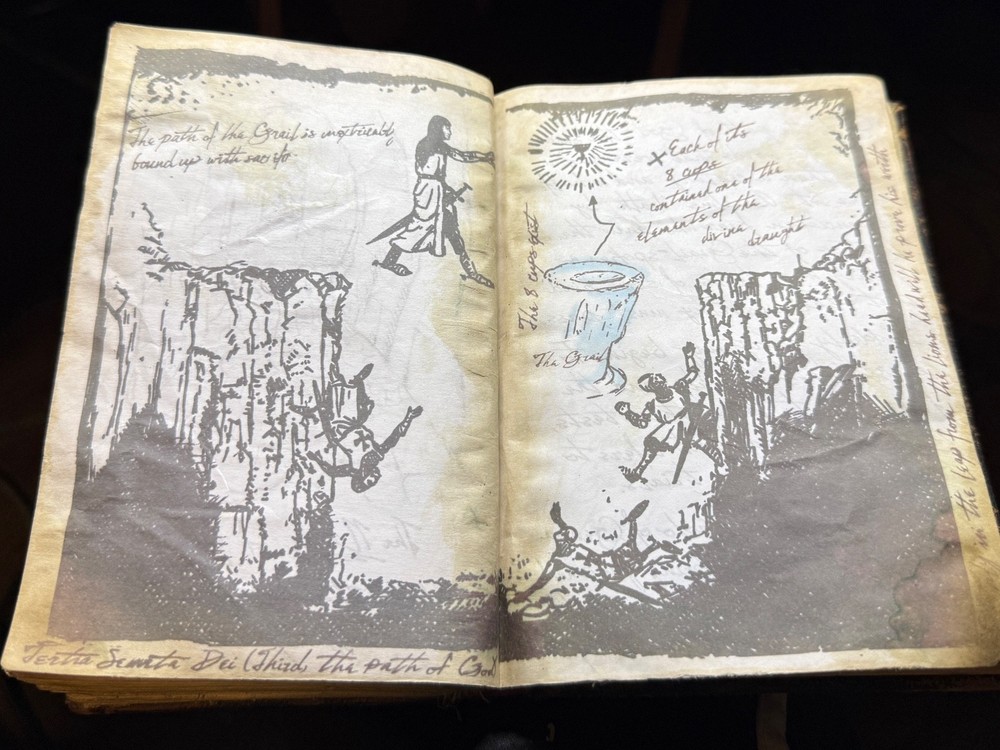 The path of the Grail is inextricably
bound up with
Each of its
8 cups
contained one of the
elements of the
divine draught
The 8 cups
The Grail
in the leap from the lions head will he prove his worth
Tertia Semita Dei (Third, the path of God